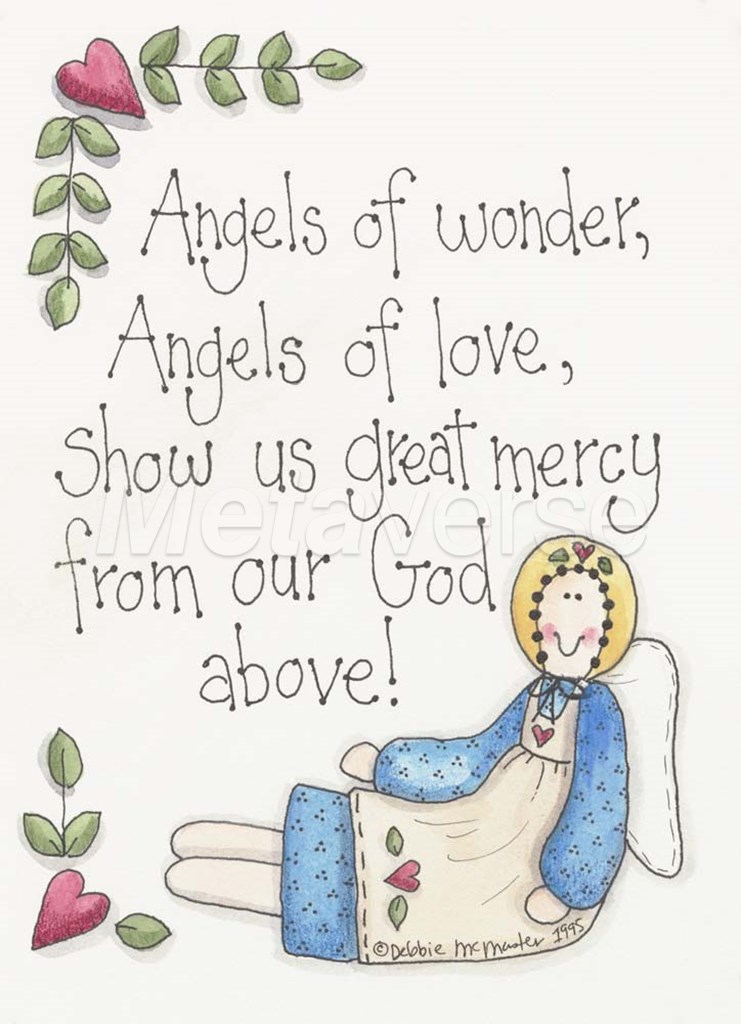 Angels of wonder,
Angels of love,
show us great mercy
Metaverse
from our God
above!
©Debbie McMaster 1995